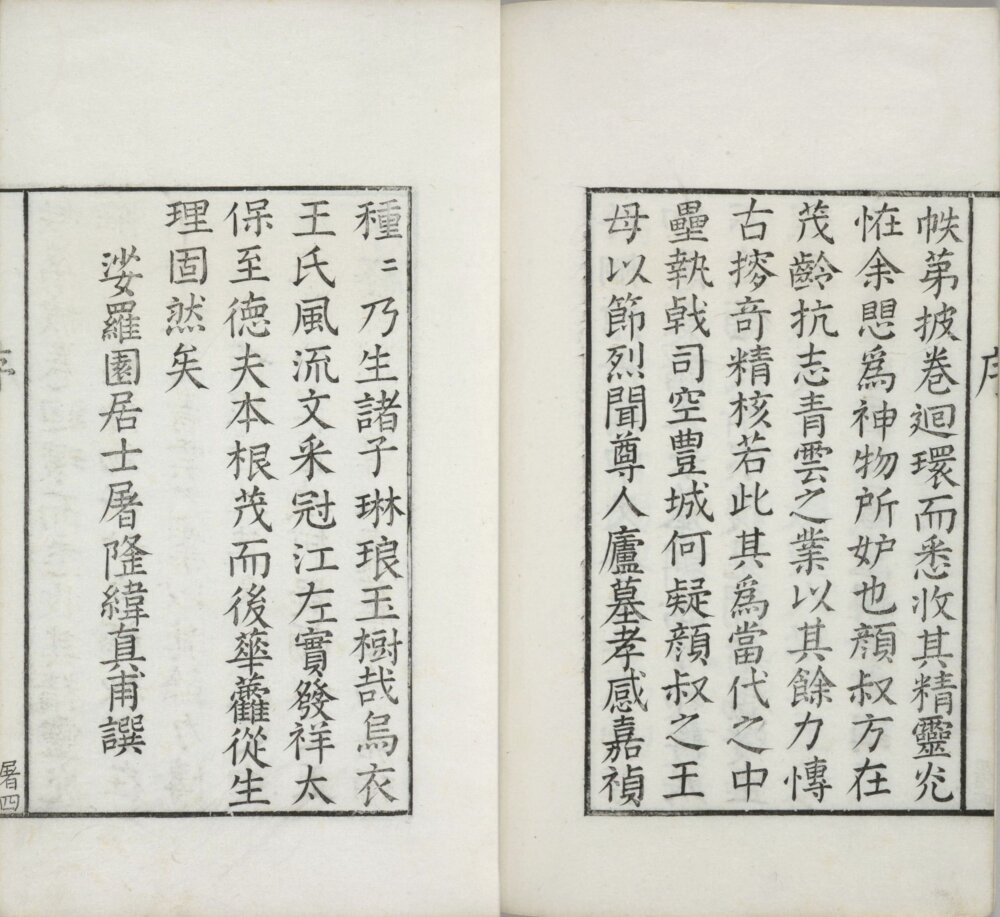 序
帙苐披卷迴環而悉收其精靈炗
恠余愳爲神物所妒也顔叔方在
茂齡抗志青雲之業以其餘力慱
古搜竒精核若此其爲當代之中
壘執㦸司空豊城何疑顔叔之王
母以節烈聞尊人廬墓孝感嘉禎
種〻乃生諸子琳琅玉樹哉烏衣
王氏風流文采冠江左實發祥太
保至德夫本根茂而後華虌從生
理固然矣
娑羅園居士屠隆緯真甫譔
序
屠四